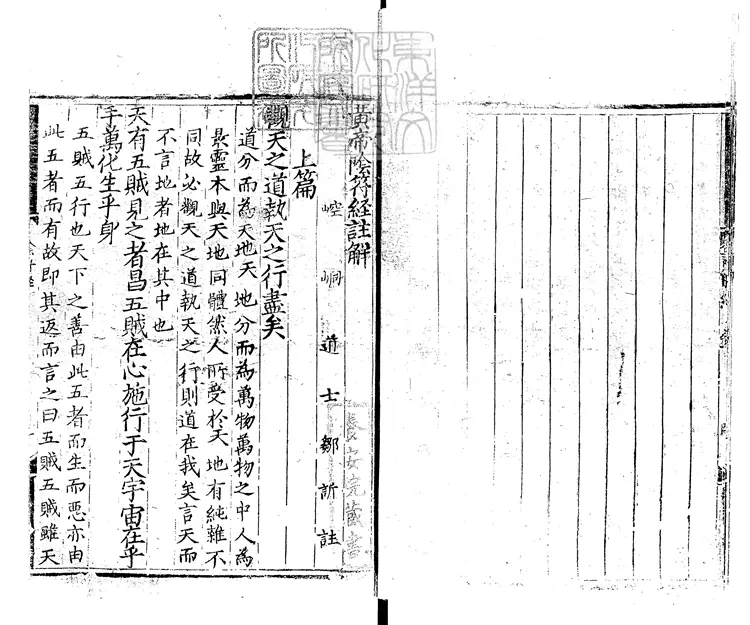 黃帝陰符經註解
崆峒道士鄒訢註
上篇
觀天之道執天之行盡矣
道分而為天地天地分而為萬物萬物之中人為
最靈本與天地同體然人所受於天地有純雜不
同故必觀天之道執天之行則道在我矣言天而
不言地者地在其中也
天有五賊見之者昌五賊在心施行于天宇宙在乎
手萬化生乎身
五賊五行也天下之善由此五者而生而惡亦由
此五者而有故即其返而言之曰五賊五賊雖天